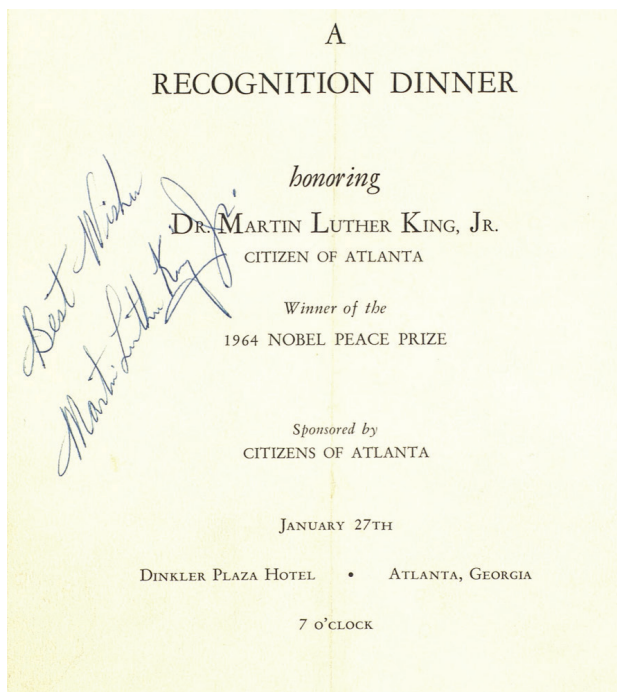 A
RECOGNITION DINNER
honoring
DR. MARTIN LUTHER KING, JR.
CITIZEN OF ATLANTA
Winner of the
1964 NOBEL PEACE PRIZE
Sponsored by
CITIZENS OF ATLANTA
JANUARY 27TH
DINKLER PLAZA HOTEL • ATLANTA, GEORGIA
7 O'CLOCK
Best Wishes
Martin Luther King Jr.